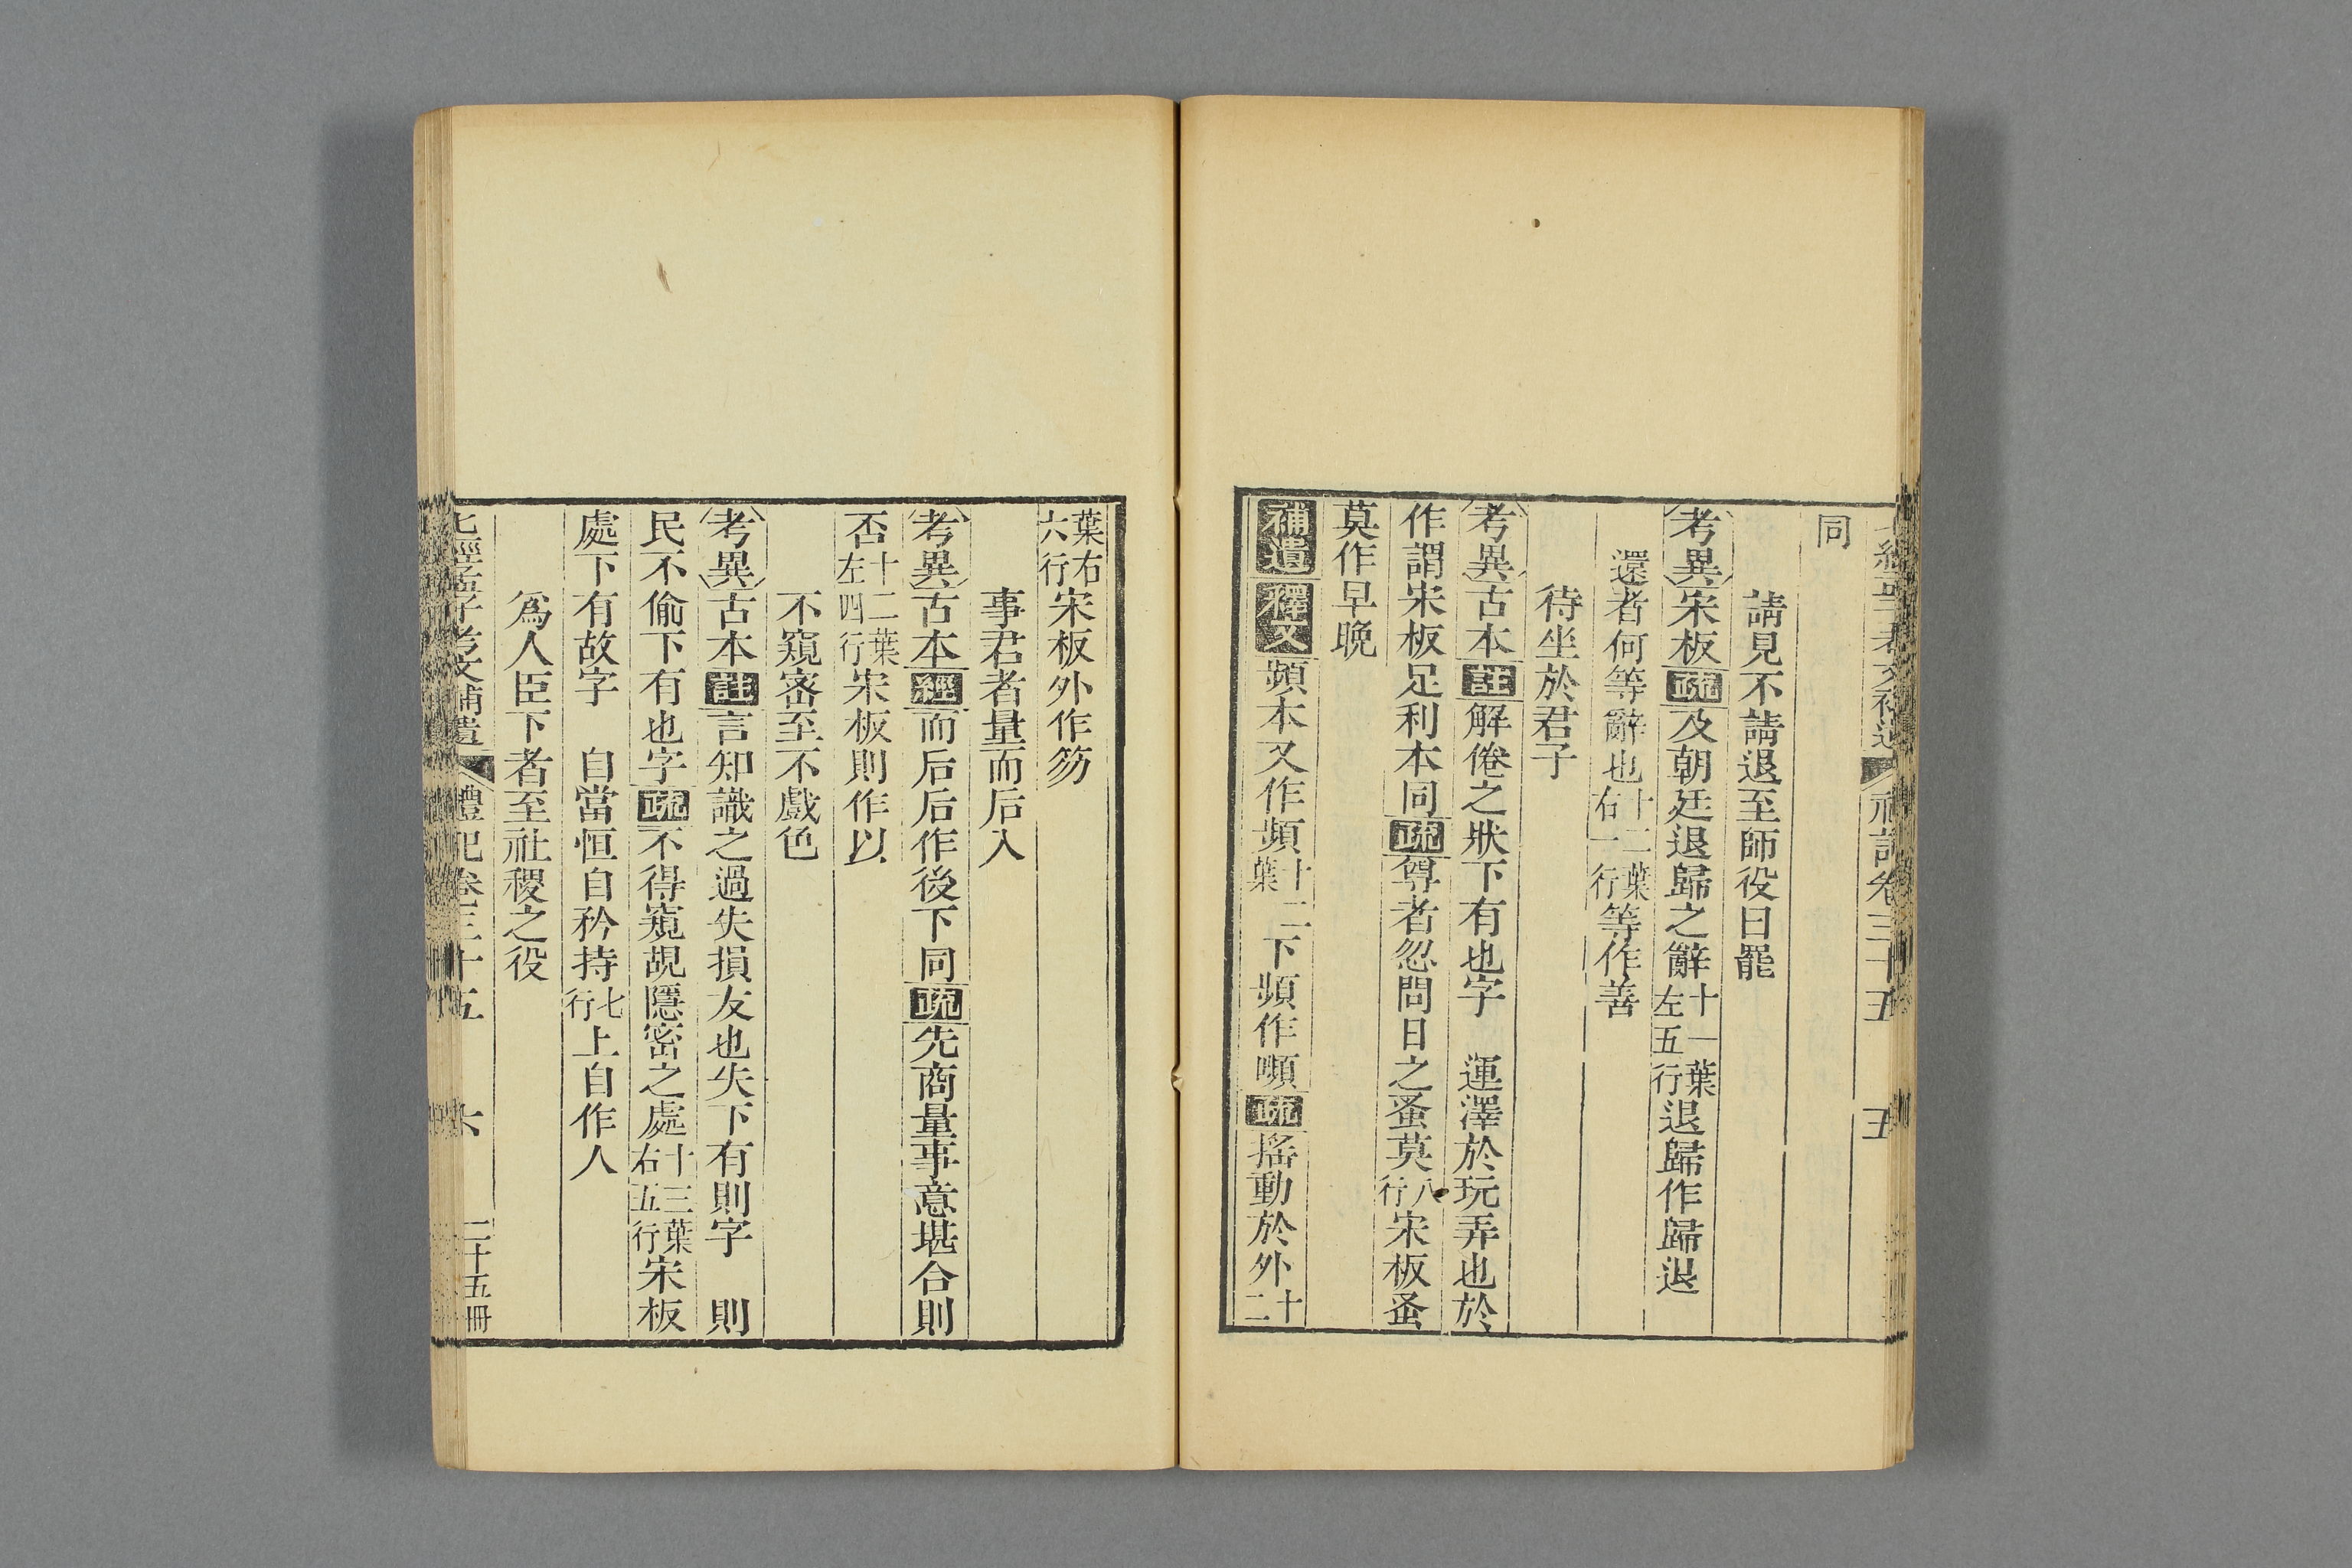 七經孟子考文補遺 禮記卷三十五 五
同
請見不請退至師役曰罷
考異宋板疏及朝廷退歸之辭十一葉左五行退歸作歸退
還者何等辭也十二葉右一行等作善
待坐於君子
考異古本註解倦之狀下有也字 運澤於玩弄也於
作謂宋板足利本同疏尊者忽問日之蚤莫八行宋板蚤
莫作早晚
補遺釋文頻本又作頻十二葉下頻作嚬疏搖動於外十二
葉右六行宋板外作笏
事君者量而后入
考異古本經而后后作後下同疏先商量事意堪合則
否十二葉左四行宋板則作以
不窺密至不戲色
考異古本註言知識之過失損友也失下有則字 則
民不偷下有也字疏不得窺覘隱密之處十三葉右五行宋板
處下有故字 自當恒自矜持七行上自作人
爲人臣下者至社稷之役
七經孟子考文補遺 禮記卷三十五 六 二十五冊